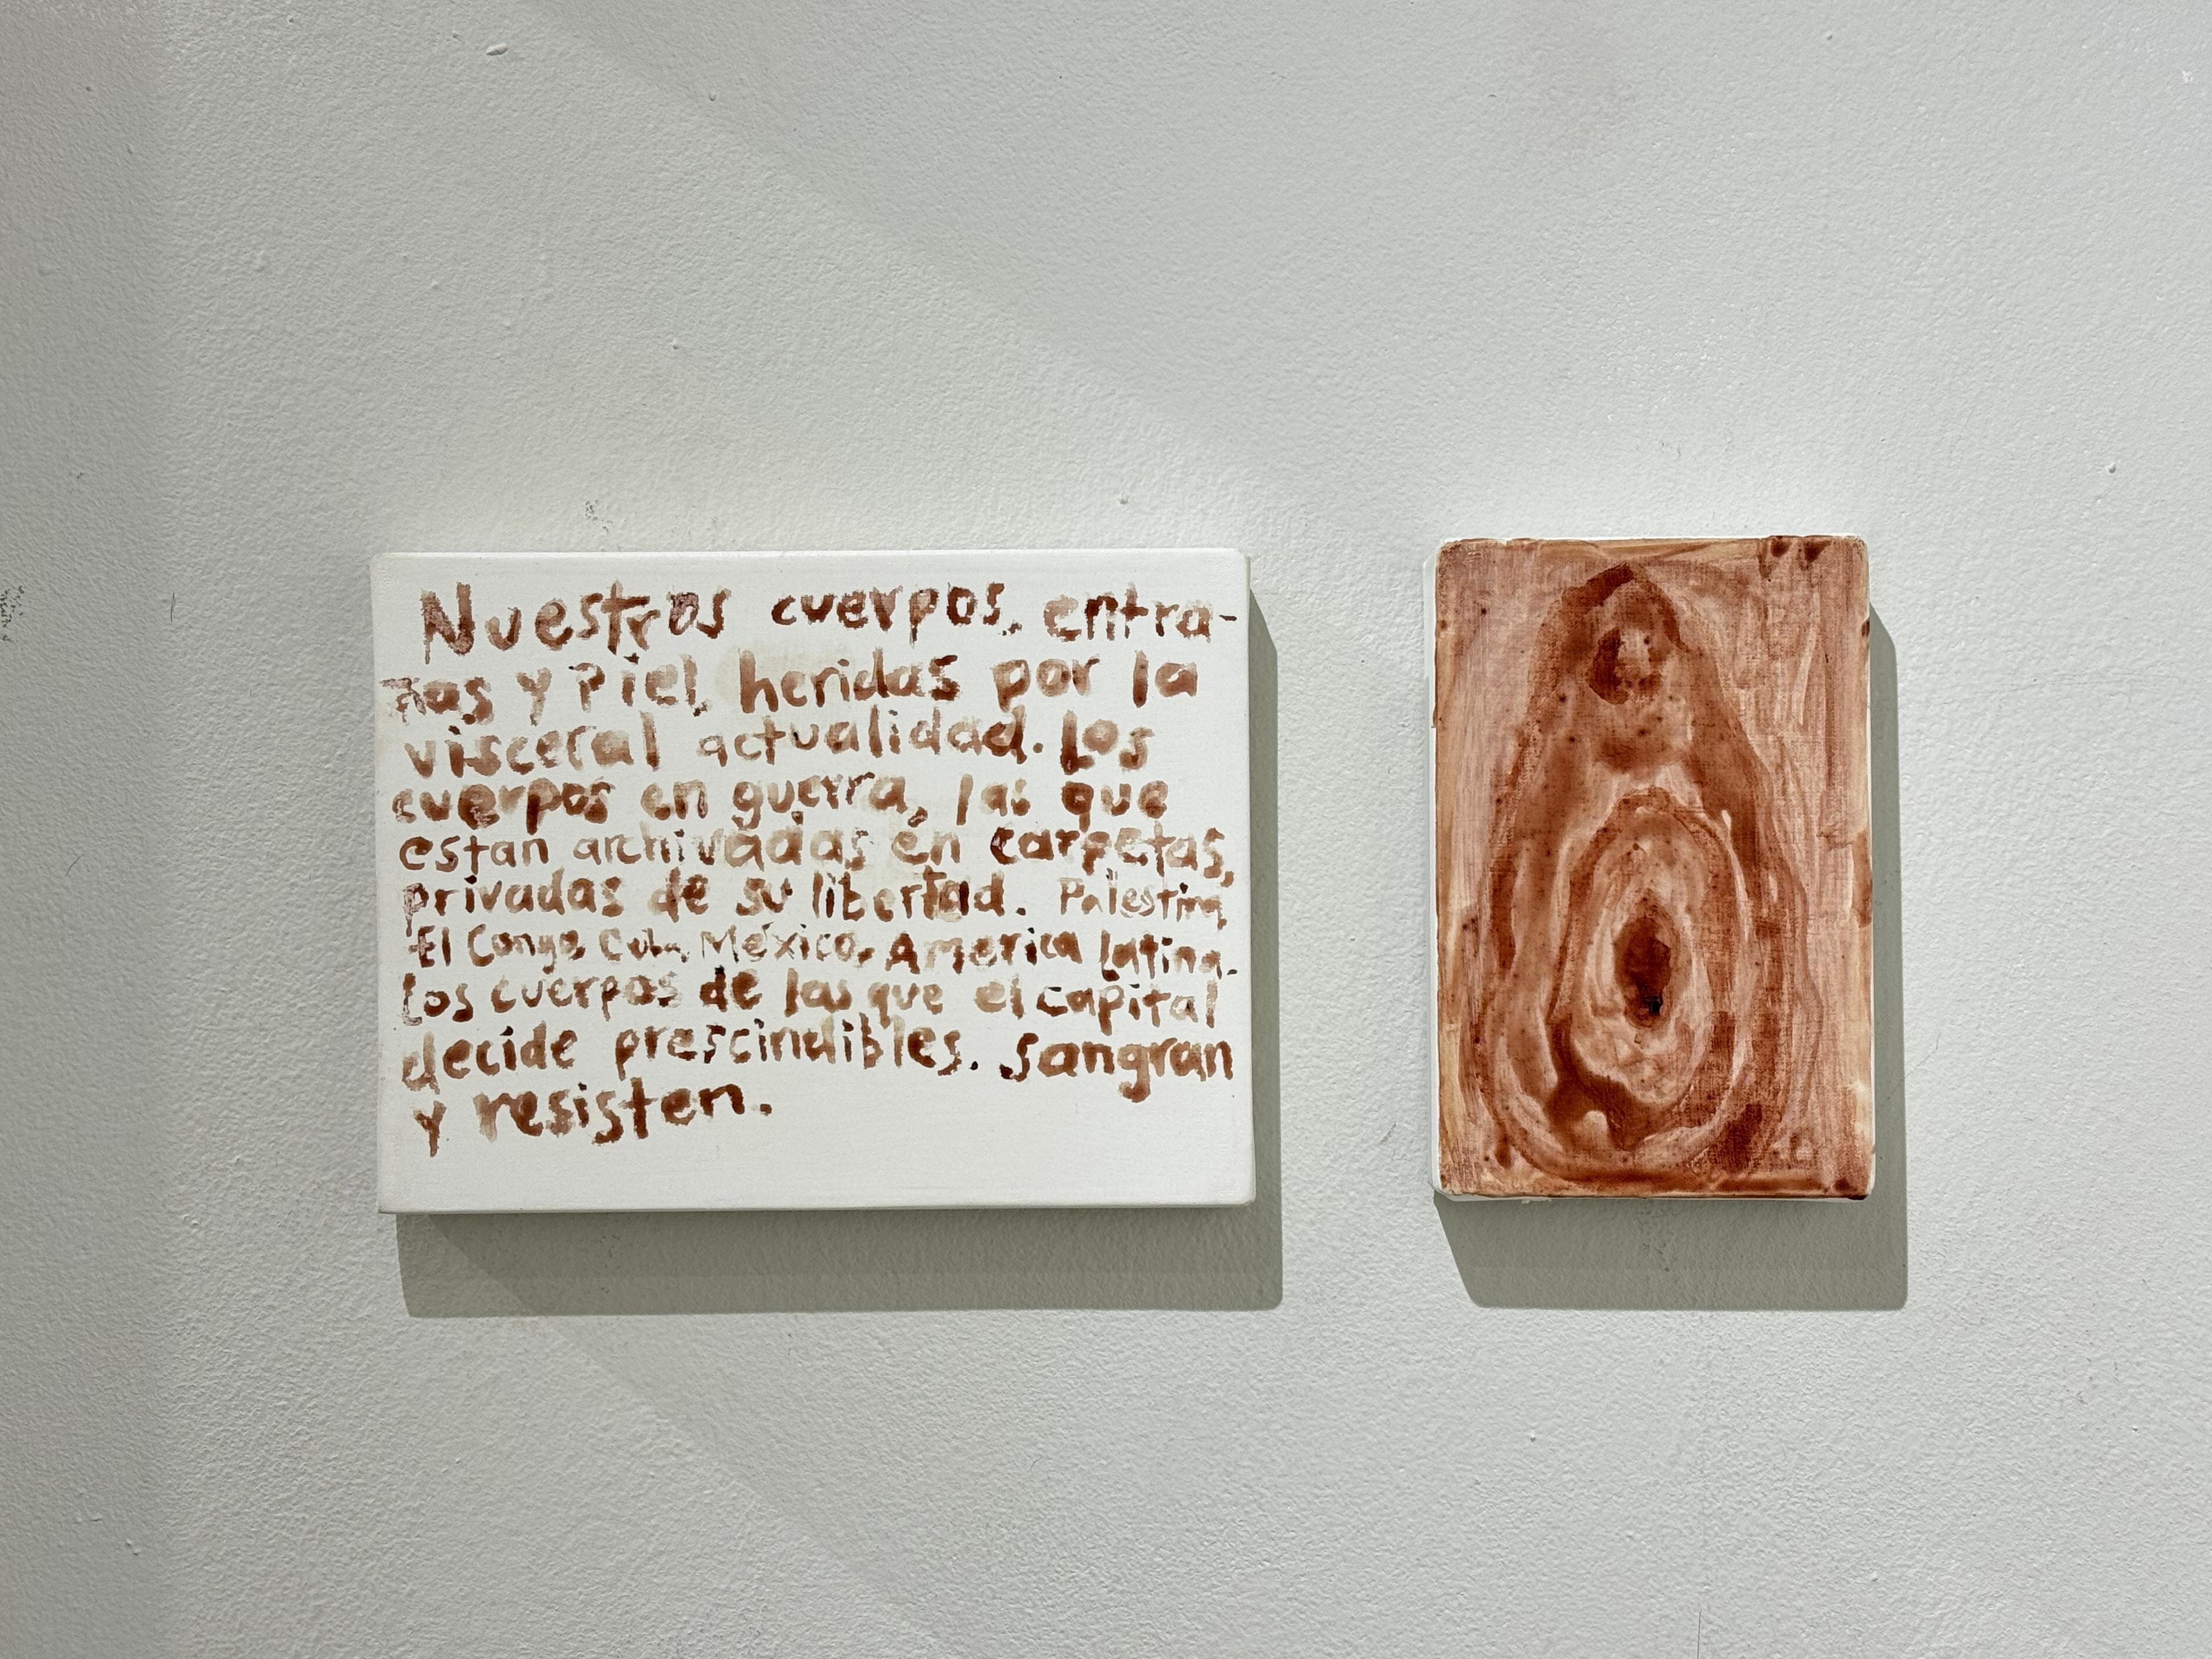 Nuestros cuerpos, entra-
ñas y Piel, heridas por la
visceral actualidad. Los
cuerpos en guerra, las que
estan archivadas en carpetas,
privadas de su libertad. Palestina,
El Congo, Cuba, México, America Latina.
Los cuerpos de las que el capital
decide prescindibles. Sangran
y resisten.